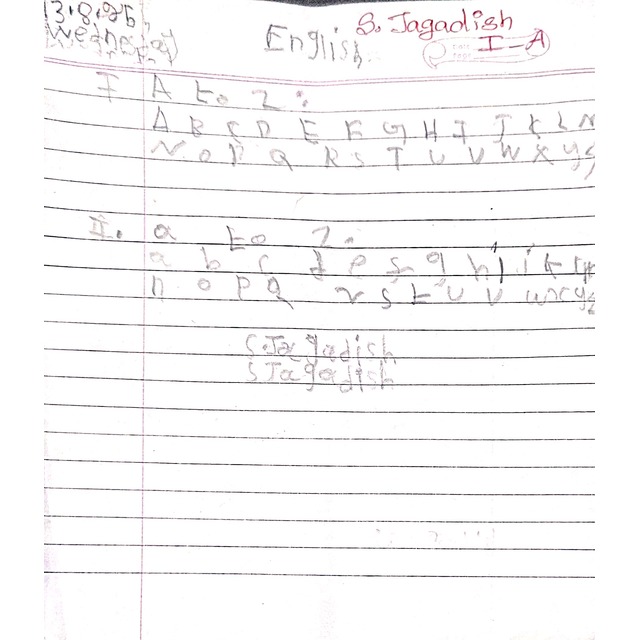 13.8.25, S. Jagadish
Wednesday English I-A
I A to Z:
A B C D E F G H I J K L M
N O P Q R S T U V W X Y Z
II. a to z.
a b c d e f g h i j k l m
n o p q r s t u v w x y z
S.Jagadish
S Jagadish